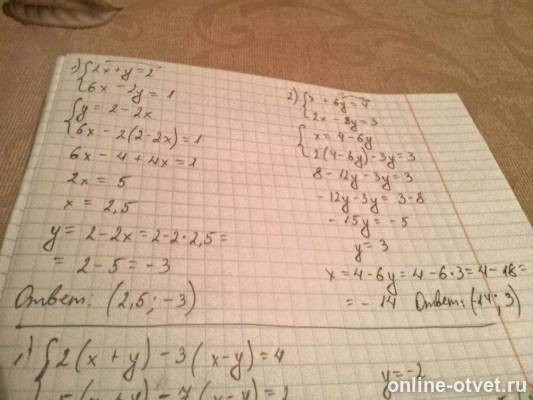 1) { 2x + y = 2
6x - 2y = 1
{ y = 2 - 2x
6x - 2(2 - 2x) = 1
6x - 4 + 4x = 1
2x = 5
x = 2,5
y = 2 - 2x = 2 - 2·2,5 =
= 2 - 5 = -3
Ответ: (2,5; -3)
2) { x + 6y = 4
2x - 8y = 3
{ x = 4 - 6y
2(4 - 6y) - 3y = 3
8 - 12y - 3y = 3
-12y - 3y = 3 - 8
-15y = -5
y = 3
x = 4 - 6y = 4 - 6·3 = 4 - 18 =
= -14 Ответ: (-14; 3)
1) { 2(x + y) - 3(x - y) = 4
5(x + y) - 7(x - y) = 2
y = -2
online-otvet.ru